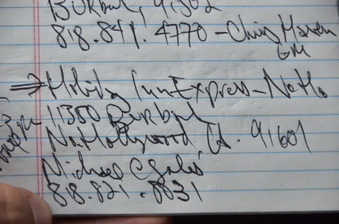 Burbank, 91502
818.841.4770 - Chris Marsh
GM
⇒ Holiday Inn Express - NoHo
11350 Burbank
No. Hollywood, CA. 91601
Michael
818.821.8831